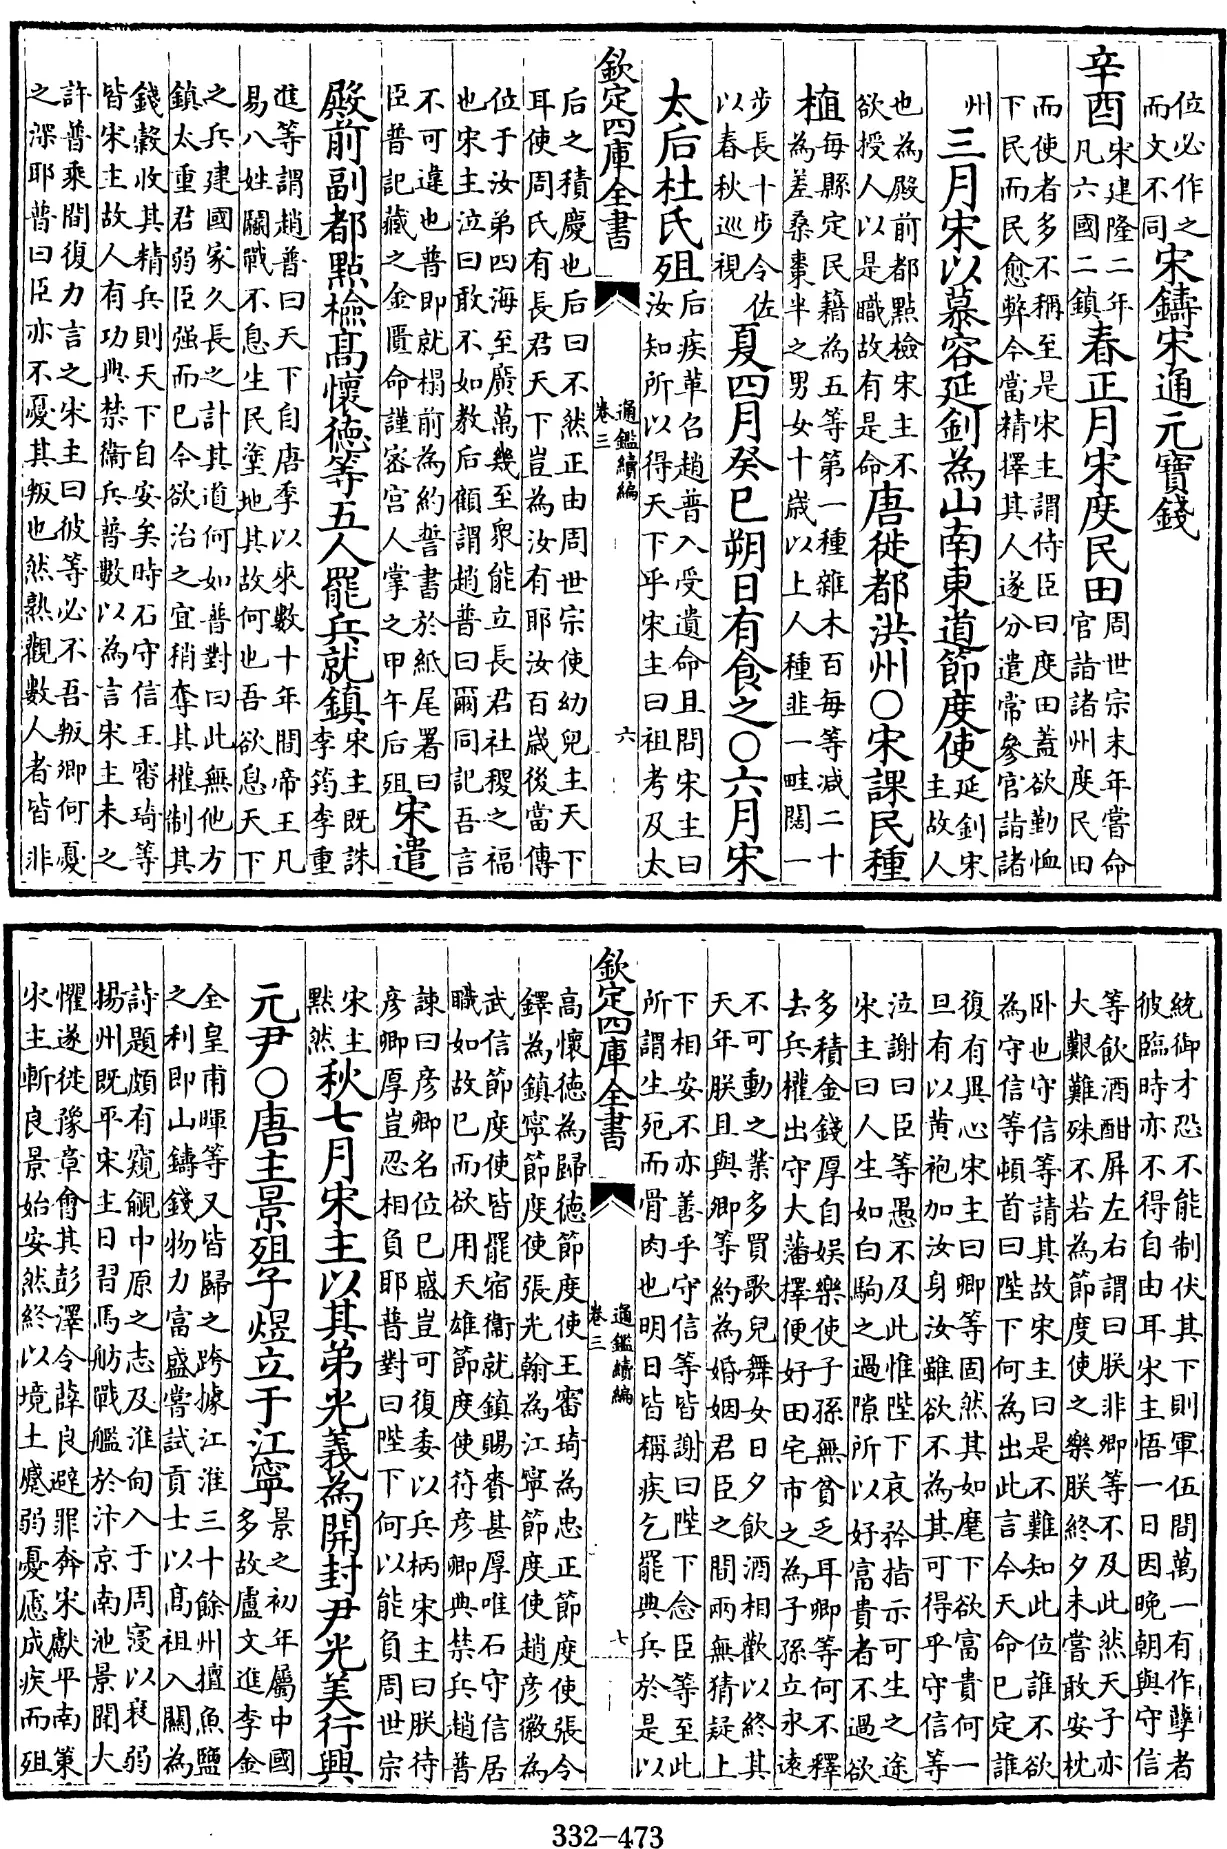 位必作之
而文不同
宋鑄宋通元寶錢
辛酉
宋建隆二年
凡六國二鎮
春正月宋度民田
周世宗末年嘗命
官詣諸州度民田
而使者多不稱至是宋主謂侍臣曰度田蓋欲勤恤
下民而民愈弊今當精擇其人遂分遣常參官詣諸
州
三月宋以慕容延釗為山南東道節度使
延釗宋
主故人
也為殿前都點檢宋主不
欲授人以是職故有是命
唐徙都洪州○宋課民種
植
每縣定民籍為五等第一種雜木百每等减二十
為差桑棗半之男女十歲以上人種韭一畦闊一
步長十步令佐
以春秋巡視
夏四月癸巳朔日有食之○六月宋
太后杜氏殂
后疾革召趙普入受遺命且問宋主曰
汝知所以得天下乎宋主曰祖考及太
欽定四庫全書
通鑑續編
卷三
六
后之積慶也后曰不然正由周世宗使幼兒主天下
耳使周氏有長君天下豈為汝有耶汝百歲後當傳
位于汝弟四海至廣萬幾至衆能立長君社稷之福
也宋主泣曰敢不如教后顧謂趙普曰爾同記吾言
不可違也普即就榻前為約誓書於紙尾署曰
臣普記藏之金匱命謹密宮人掌之甲午后殂
宋遣
殿前副都點檢高懷德等五人罷兵就鎮
宋主既誅
李筠李重
進等謂趙普曰天下自唐季以來數十年間帝王凡
易八姓鬭戰不息生民塗地其故何也吾欲息天下
之兵建國家久長之計其道何如普對曰此無他方
鎮太重君弱臣强而已今欲治之宜稍奪其權制其
錢穀收其精兵則天下自安矣時石守信王審琦等
皆宋主故人有功典禁衛兵普數以為言宋主未之
許普乘間復力言之宋主曰彼等必不吾叛卿何憂
之深耶普曰臣亦不憂其叛也然熟觀數人者皆非
統御才恐不能制伏其下則軍伍間萬一有作孽者
彼臨時亦不得自由耳宋主悟一日因晚朝與守信
等飲酒酣屏左右謂曰朕非卿等不及此然天子亦
大艱難殊不若為節度使之樂朕終夕未嘗敢安枕
卧也守信等請其故宋主曰是不難知此位誰不欲
為守信等頓首曰陛下何為出此言今天命已定誰
復有異心宋主曰卿等固然其如麾下欲富貴何一
旦有以黄袍加汝身汝雖欲不為其可得乎守信等
泣謝曰臣等愚不及此惟陛下哀矜指示可生之途
宋主曰人生如白駒之過隙所以好富貴者不過欲
多積金錢厚自娯樂使子孫無貧乏耳卿等何不釋
去兵權出守大藩擇便好田宅市之為子孫立永遠
不可動之業多買歌兒舞女日夕飲酒相歡以終其
天年朕且與卿等約為婚姻君臣之間兩無猜疑上
下相安不亦善乎守信等皆謝曰陛下念臣等至此
所謂生死而骨肉也明日皆稱疾乞罷典兵於是以
欽定四庫全書
通鑑續編
卷三
七
高懷德為歸德節度使王審琦為忠正節度使張令
鐸為鎮寧節度使張光翰為江寧節度使趙彦徽為
武信節度使皆罷宿衛就鎮賜賚甚厚唯石守信居
職如故已而欲用天雄節度使符彦卿典禁兵趙普
諫曰彦卿名位已盛豈可復委以兵柄宋主曰朕待
彦卿厚豈忍相負耶普對曰陛下何以能負周世宗
宋主
黙然
秋七月宋主以其弟光義為開封尹光美行興
元尹○唐主景殂子煜立于江寧
景之初年屬中國
多故盧文進李金
全皇甫暉等又皆歸之跨據江淮三十餘州擅魚鹽
之利即山鑄錢物力富盛嘗試貢士以高祖入關為
詩題頗有窺覦中原之志及淮甸入于周寖以衰弱
揚州既平宋主日習馬舫戰艦於汴京南池景聞大
懼遂徙豫章會其彭澤令薛良避罪奔宋獻平南策
宋主斬良景始安然終以境土蹙弱憂慮成疾而殂
332-473